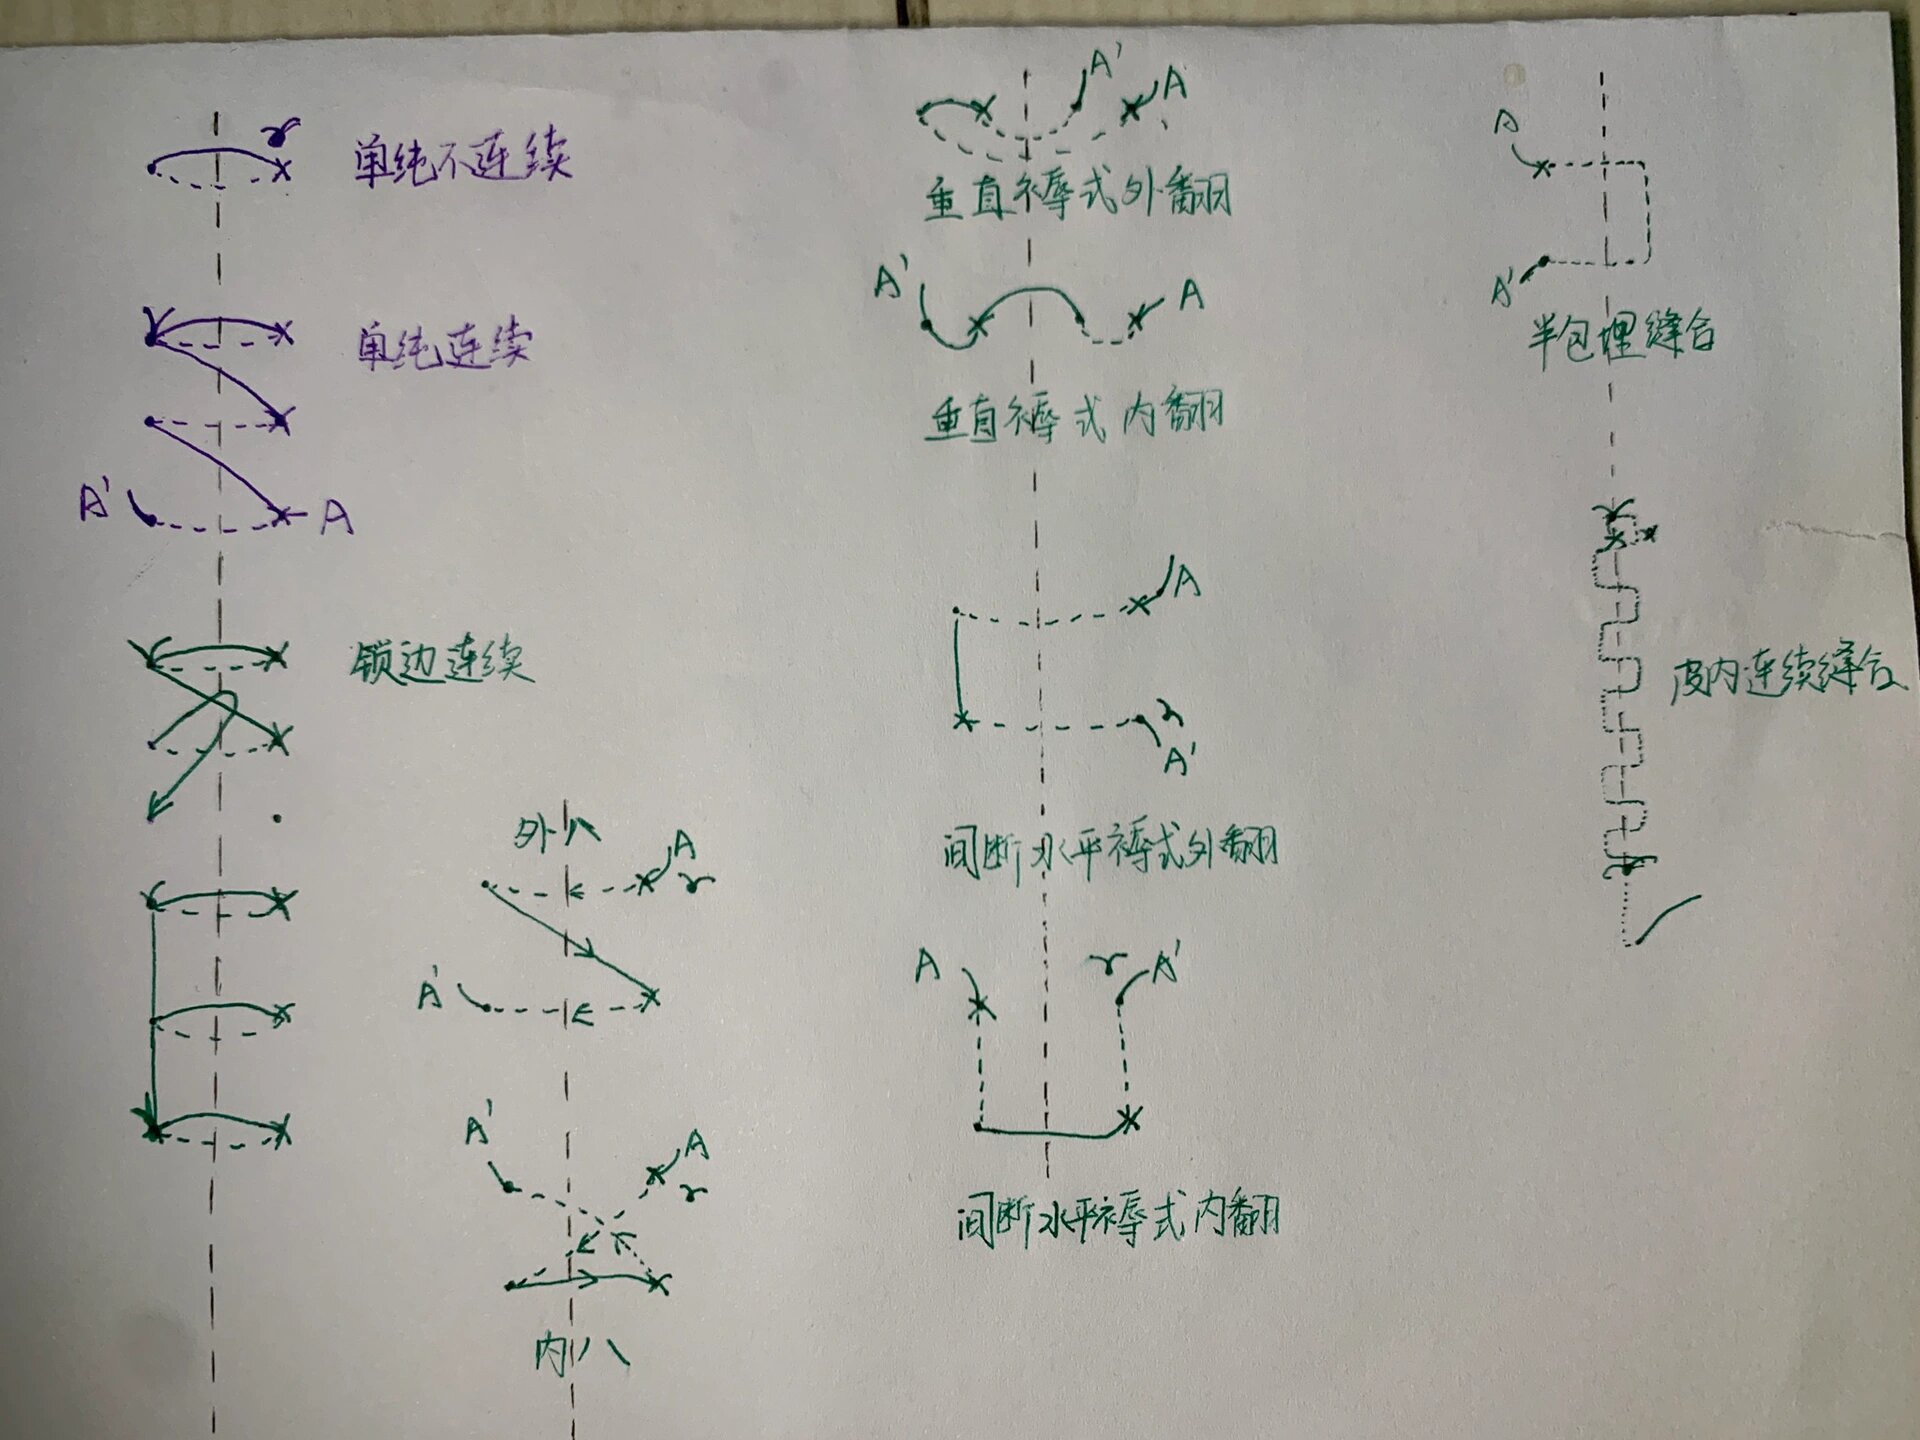 单纯不连续
单纯连续
A'
A
锁边连续
外八
A
A'
A'
A
内八
A'
A
垂直褥式外翻
A'
A
垂直褥式内翻
A
A'
间断水平褥式外翻
A
A'
间断水平褥式内翻
A
A'
半包埋缝合
皮内连续缝合